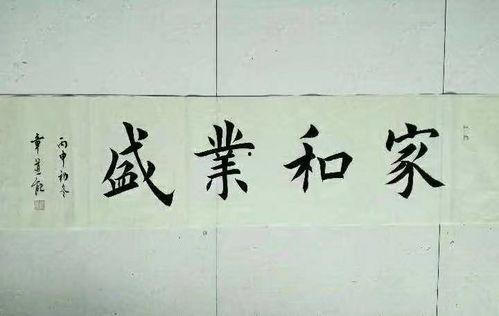 家和業盛
丙申初冬
章道